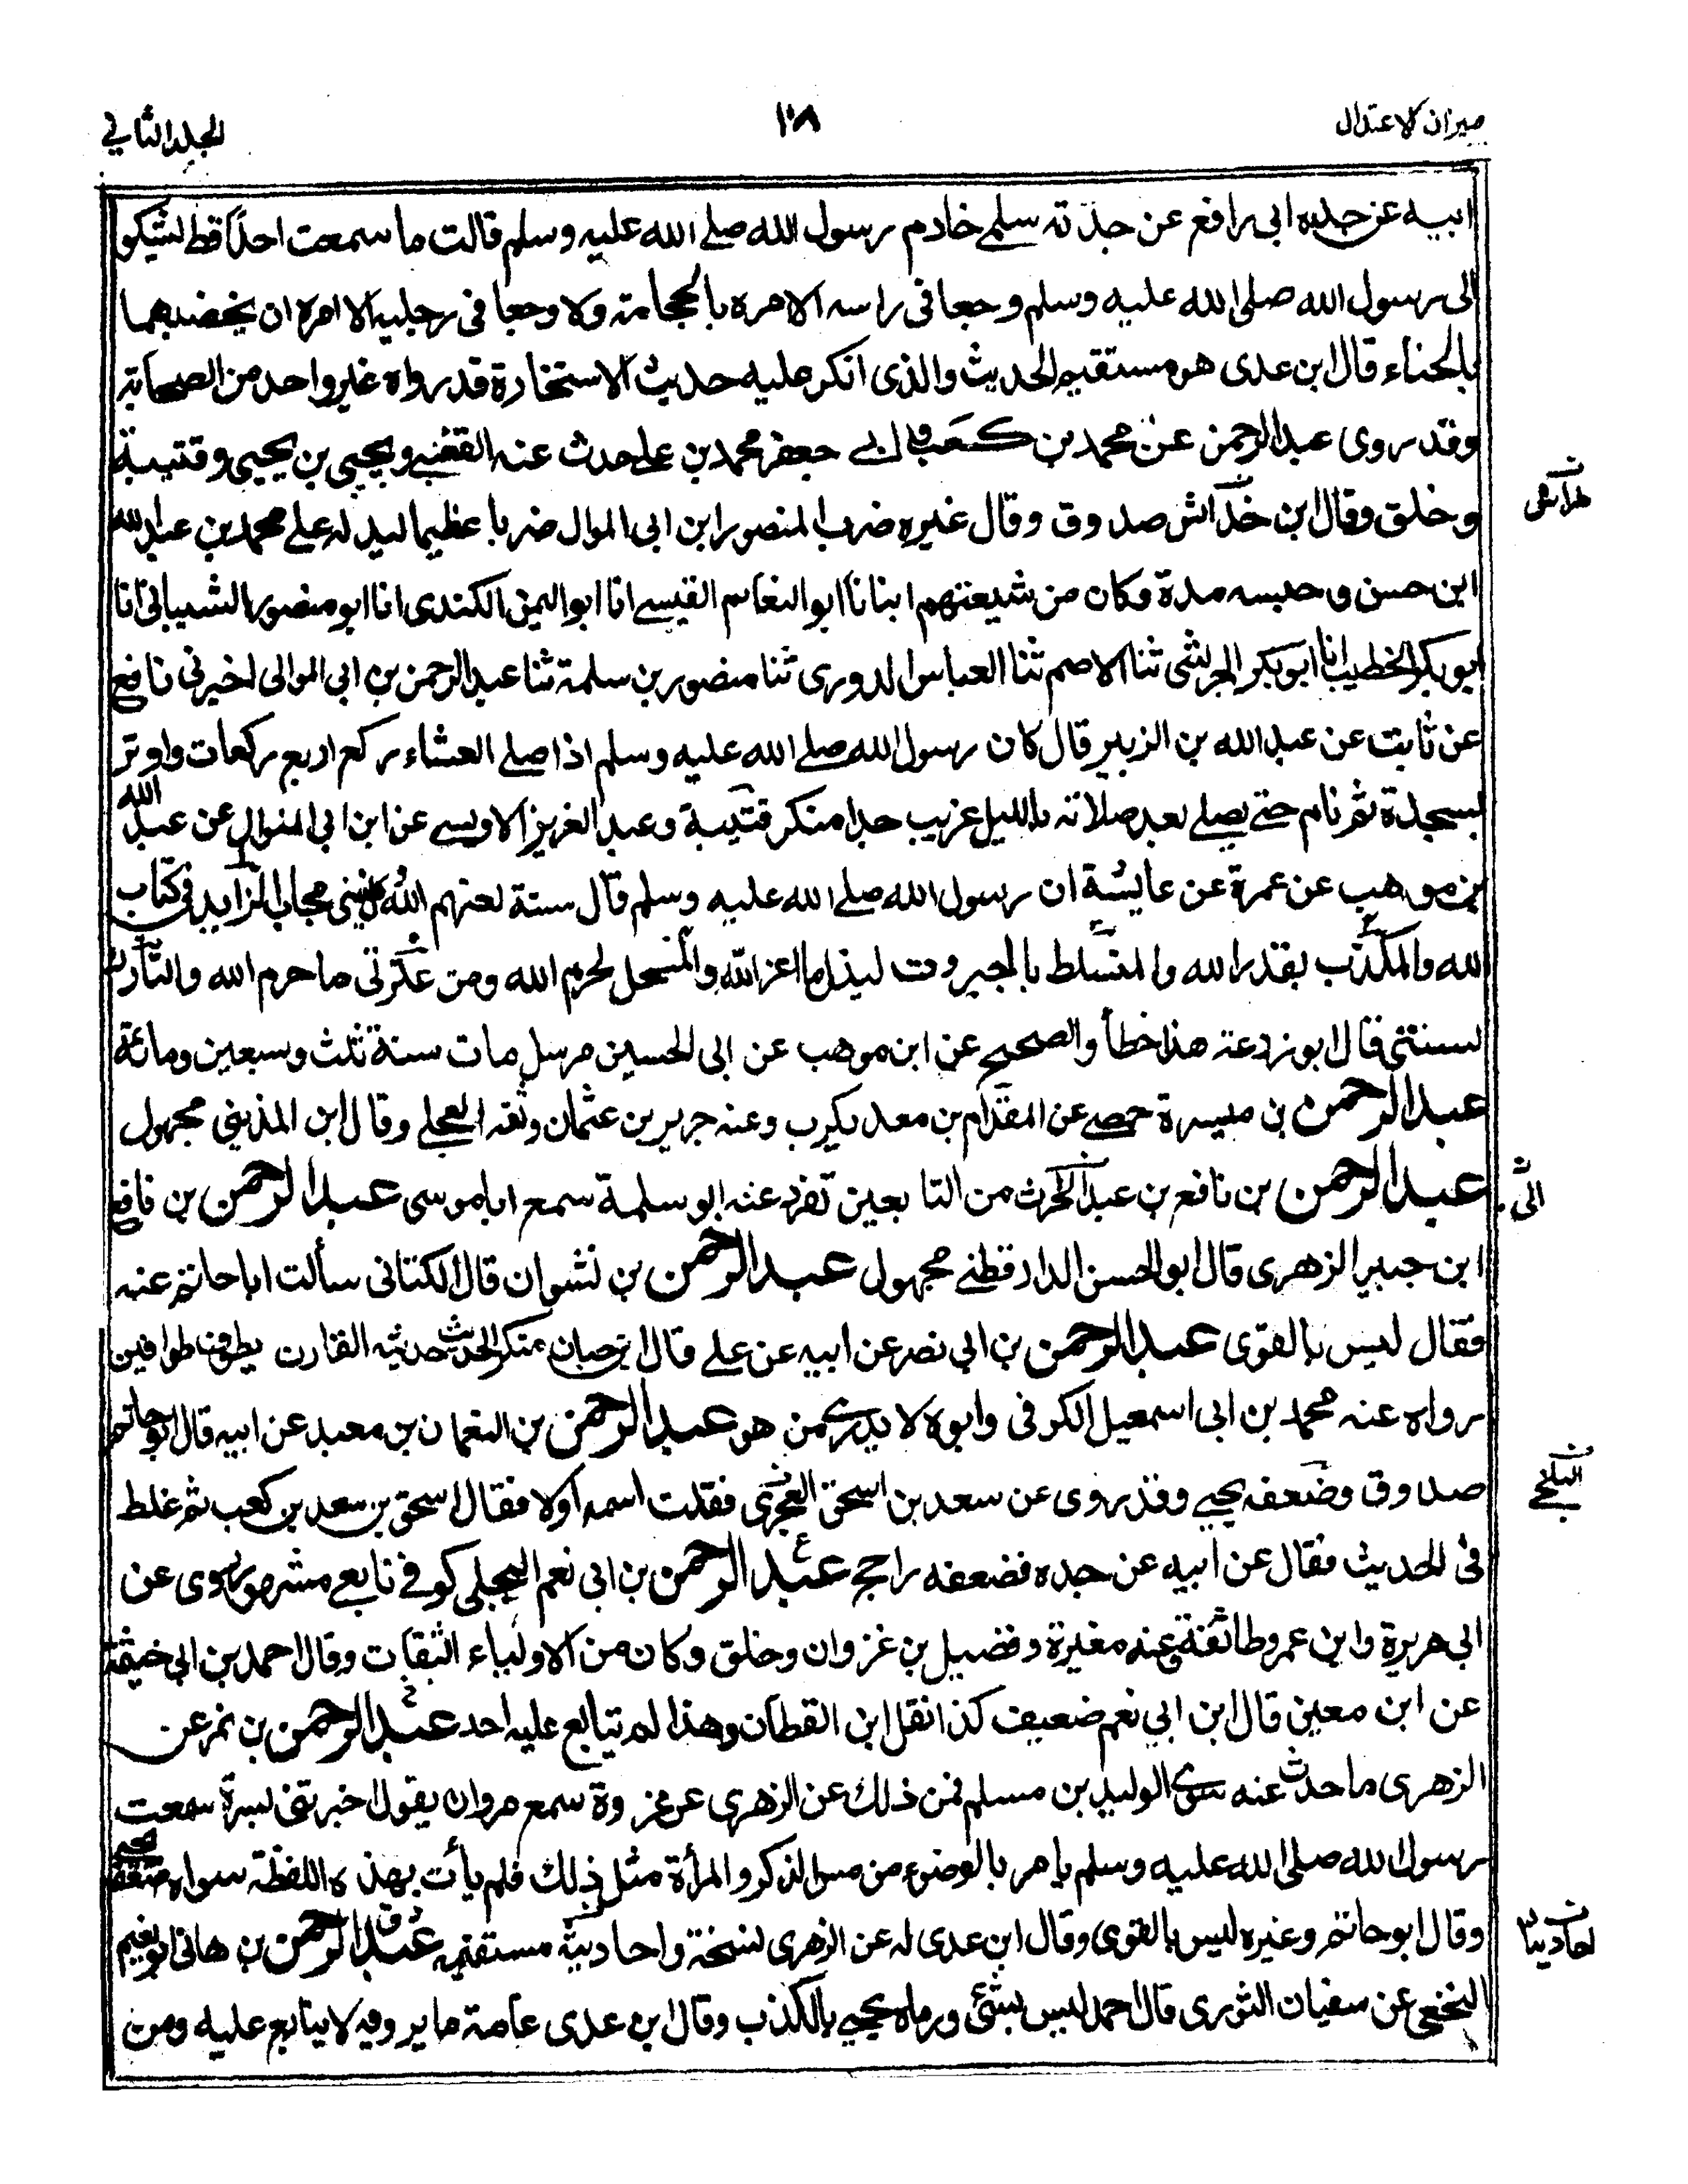 ميزان الاعتدال
١٠٨
المجلد الثاني
ابيه عن جده ابى رافع عن جدته سلمى خادم رسول الله صلے الله عليه وسلم قالت ما سمعت احدًا قط يشكو
الى رسول الله صلى الله عليه وسلم وجعا فى راسه الا امره بالحجامة ولا وجعا فى رجليه الا امره ان يخضبهما
بالحناء قال ابن عدى هو مستقيم الحديث والذى انكر عليه حديث الاستخارة قد رواه غير واحد من الصحابة
وقد روى عبد الرحمن عن محمد بن كعب وابى جعفر محمد بن على حدث عنه القعنبى ويحيى بن يحيى وقتيبة
وخلق وقال ابن خداش صدوق وقال غيره ضرب المنصور ابن ابى الموال ضربا عظيما ليدله على محمد بن عبد الله
ابن حسن وحبسه مدة وكان من شيعتهم انبانا ابو الغنائم القيسے انا ابو اليمن الكندى انا ابو منصور الشيبانى انا
ابو بكر الخطيب انا ابو بكر الجرشى ثنا الاصم ثنا العباس الدورى ثنا منصور بن سلمة ثنا عبد الرحمن بن ابى الموالى اخبرنى نافع
عن ثابت عن عبد الله بن الزبير قال كان رسول الله صلے الله عليه وسلم اذا صلے العشاء ركع اربع ركعات واوتر
بسجدة ثم نام حتے يصلے بعد صلاته بالليل غريب جدا منكر قتيبة وعبد العزيز الاويسے عن ابن ابى الموال عن عبد الله
بن موهب عن عمرة عن عايشة ان رسول الله صلے الله عليه وسلم قال ستة لعنهم الله وكل نبى مجاب الزايد فى كتاب
الله والمكذب بقدر الله والمتسلط بالجبروت ليذل ما اعز الله والمستحل لحرم الله ومن عترتى ما حرم الله والتارك
لسنتى قال ابو زرعة هذا خطأ والصحيح عن ابن موهب عن ابى الحسين مرسل مات سنة ثلث وسبعين ومائة
عبد الرحمن بن ميسرة حمصے عن المقدام بن معديكرب وعنه جرير بن عثمان وثقه العجلے وقال ابن المدينى مجهول
عبد الرحمن بن نافع بن عبد الحرث من التابعين تفرد عنه ابو سلمة سمع ابا موسى عبد الرحمن بن نافع
ابن جبير الزهرى قال ابو الحسن الدارقطنے مجهول عبد الرحمن بن نشوان قال الكتانى سألت ابا حاتم عنه
فقال ليس بالقوى عبد الرحمن بن ابي نصر عن ابيه عن علے قال ابن حبان منكر الحديث حديثه القارن يطوف طوافين
رواه عنه محمد بن ابى اسمعيل الكوفى وابوه لا يدرى من هو عبد الرحمن بن النعمان بن معبد عن ابيه قال ابو حاتم
صدوق وضعفه يحيى وقد روى عن سعد بن اسحق العجرى فقلت اسمه اولا فقال اسحق بن سعد بن كعب ثم غلط
فى الحديث فقال عن ابيه عن جده فضعفه راجح عبد الرحمن بن ابى نعم البجلى كوفے تابعے مشهور روى عن
ابى هريرة وابن عمر وطائفة وعنه مغيرة وفضيل بن غزوان وخلق وكان من الاولياء الثقات وقال احمد بن ابى خيثمة
عن ابن معين قال ابن ابي نعم ضعيف كذا نقل ابن القطان وهذا لم يتابع عليه احد عبد الرحمن بن نمر عن
الزهرى ما حدث عنه سوى الوليد بن مسلم فمن ذلك عن الزهرى عن عروة سمع مروان يقول اخبرتنى بسرة سمعت
رسول الله صلى الله عليه وسلم يامر بالوضوء من مس الذكر والمرأة مثل ذلك فلم يأت بهذه اللفظة سواه ضعفه يحيى
وقال ابو حاتم وغيره ليس بالقوى وقال ابن عدى له عن الزهرى نسخة واحاديثه مستقيمه عبد الرحمن بن هانى ابو نعيم
النخعى عن سفيان الثورى قال احمد ليس بشئ ورماه يحيى بالكذب وقال ابن عدى عامة ما يرويه لا يتابع عليه ومن